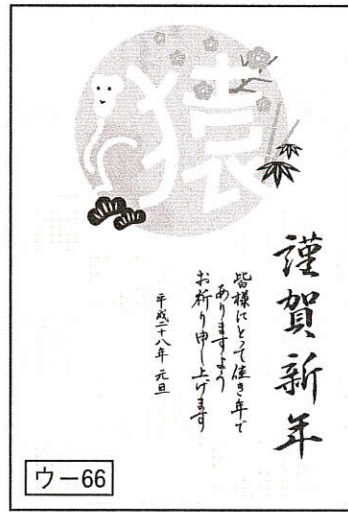 猿
謹賀新年
皆様にとって佳き年で
ありますよう
お祈り申し上げます
平成二十八年 元旦
ウー66